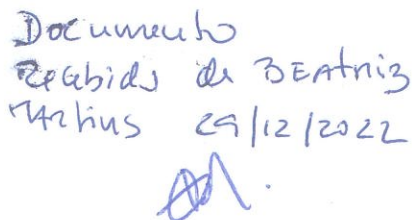 Documento
Recebido de BEAtriz
MArtins 29/12/2022